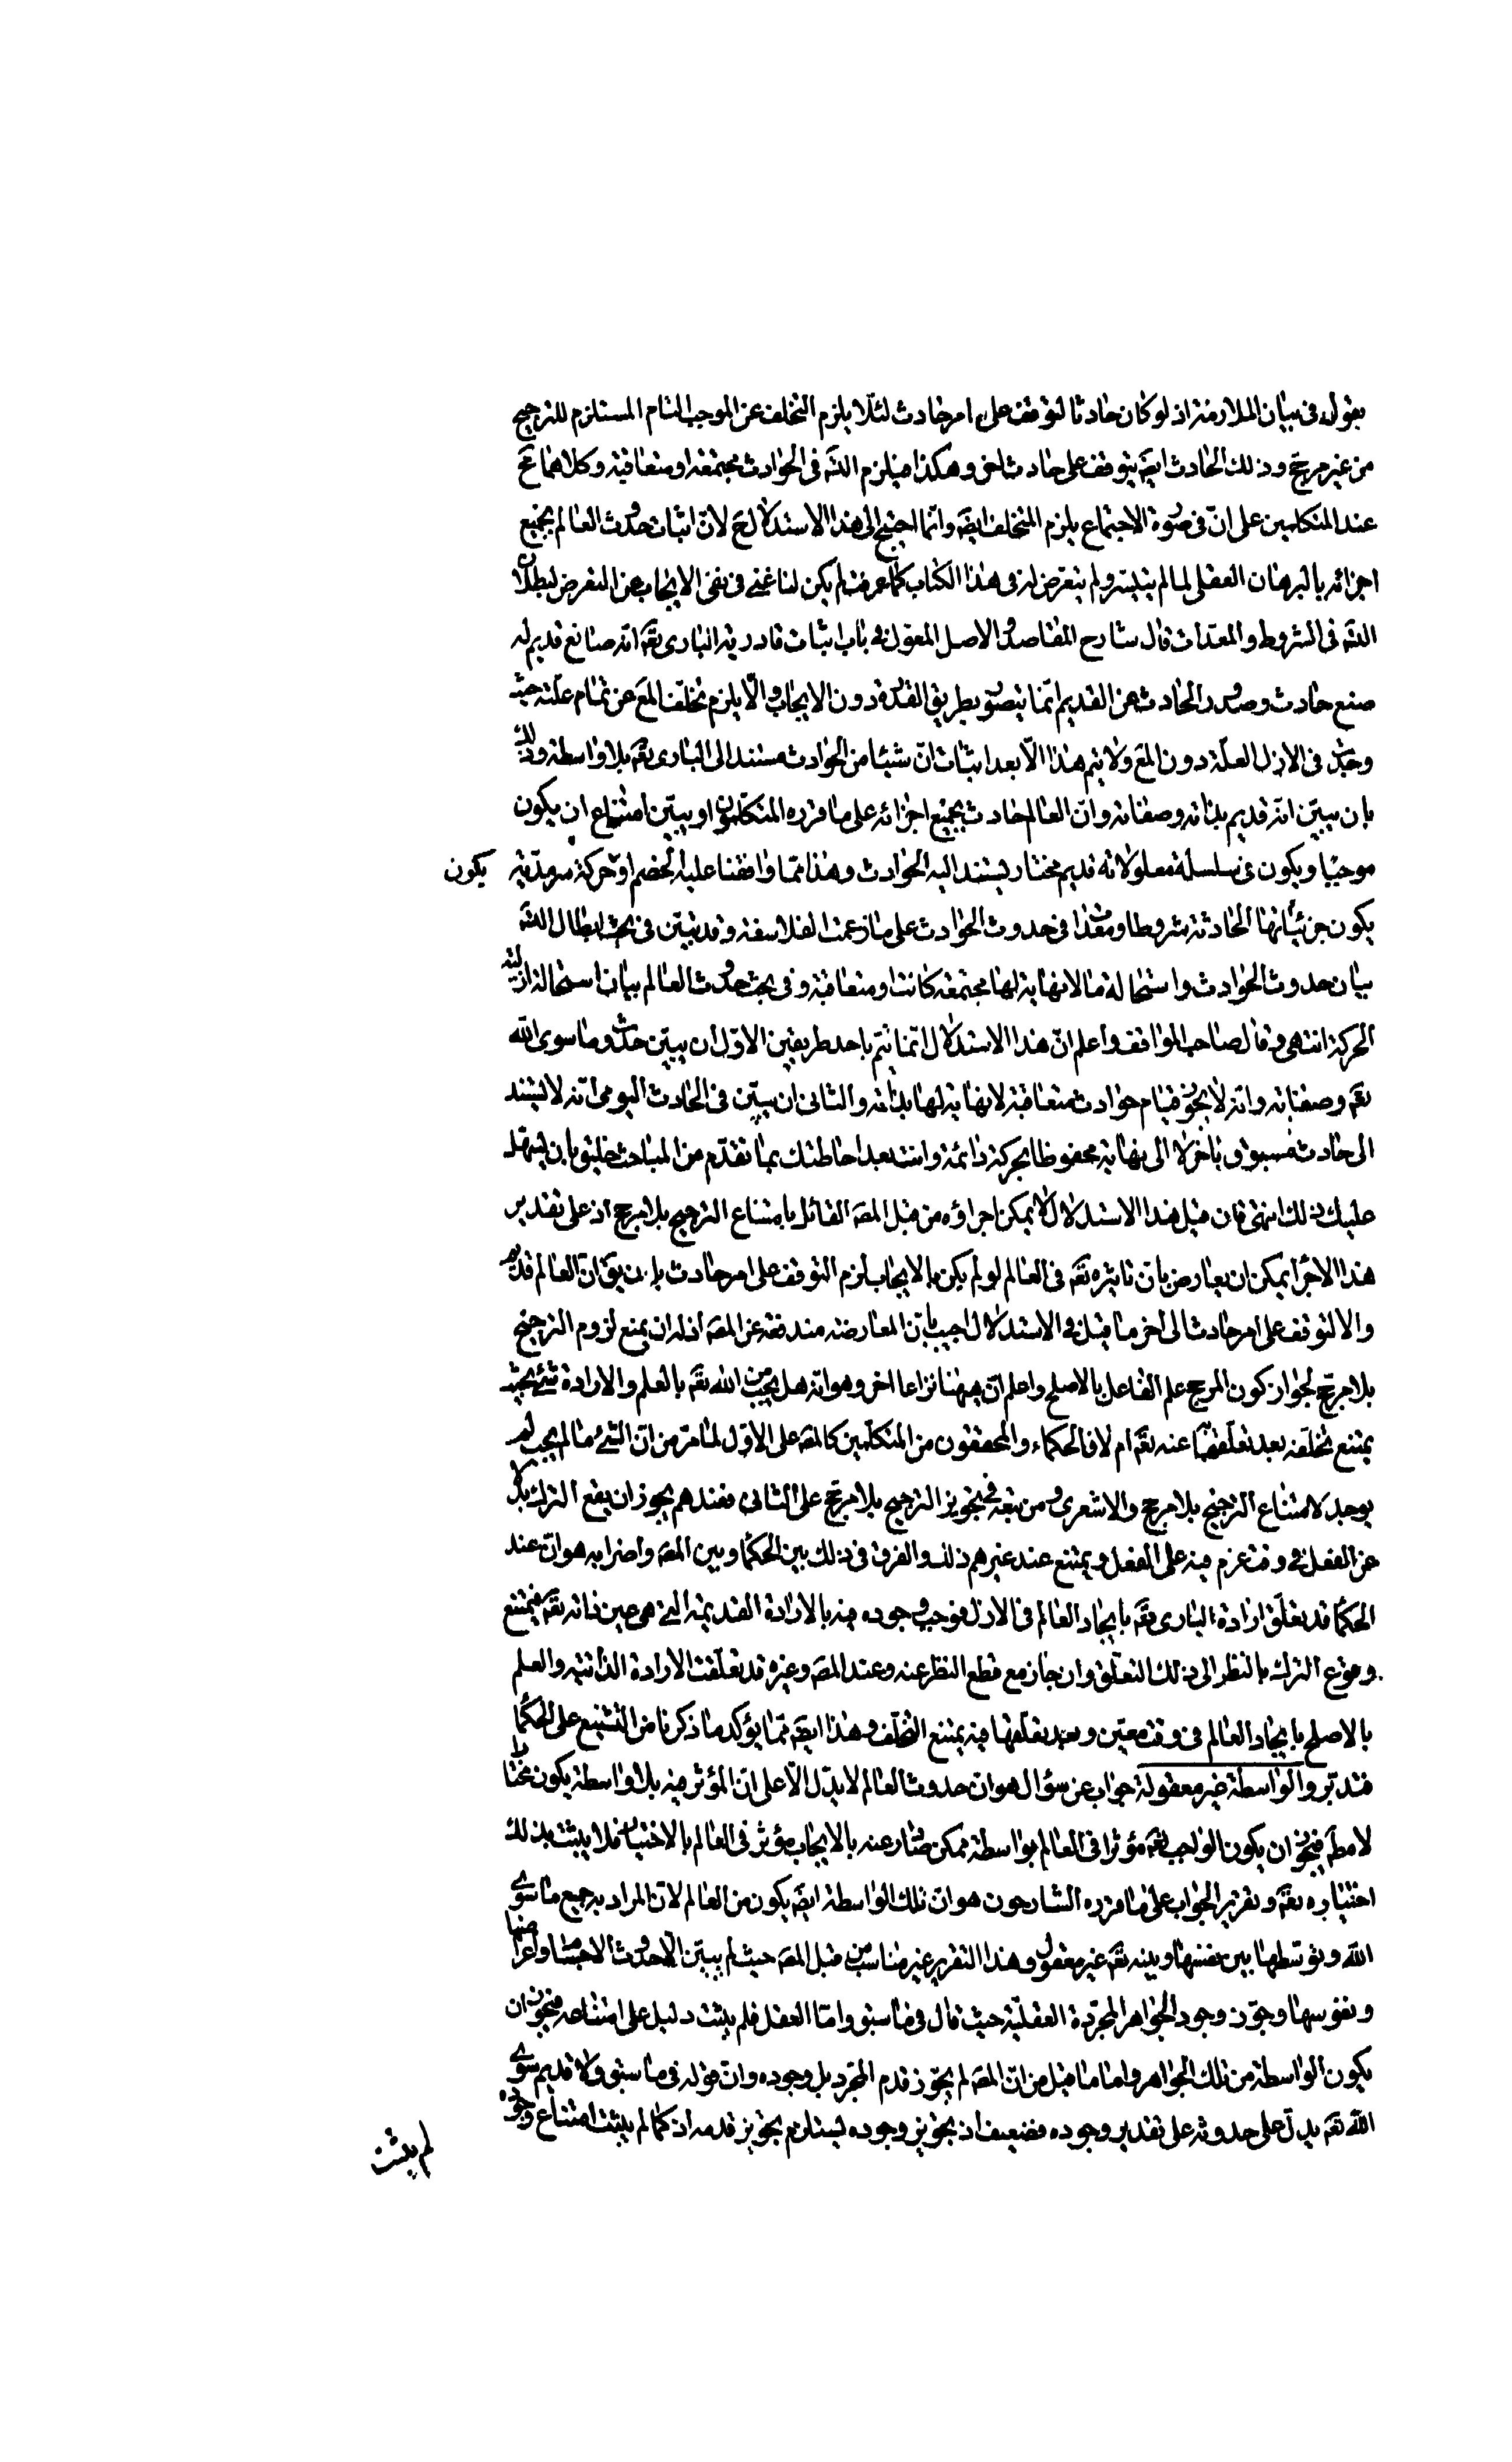 يقول فى بيان الملازمة اذ لو كان حادثا لتوقف على امر حادث لئلا يلزم التخلف عن الموجب التام المستلزم للترجيح
من غير مرجح وذلك الحادث ايضَ يتوقف على حادث اخر وهكذا فيلزم التسَ فى الحوادث مجتمعة او متعاقبة وكلاهما مح
عند المتكلمين على ان فى صورة الاجتماع يلزم التخلف ايضَ وانما احتيج الى هذا الاستدلال ح لان اثبات حدوث العالم بجميع
اجزائه بالبرهان العقلى لما لم يتيسر ولم يتعرض له فى هذا الكتاب كما عرفت لم يكن لنا غنى فى نفى الايجاب عن التعرض لبطلان
التسَ فى الشروط والمعدات قال شارح المقاصد والاصل المعول فى باب اثبات قادرية البارى تعَ انه صانع قديم له
صنع حادث وصدور الحادث عن القديم انما يتصور بطريق القدرة دون الايجاب والا يلزم تخلف المعَ عن تمام علته حيث
وجدت فى الازل العلة دون المعَ ولا يتم هذا الا بعد اثبات ان شيئا من الحوادث مستند الى البارى تعَ بلا واسطة وذلك
بان يبين انه قديم بذاته وصفاته وان العالم حادث بجميع اجزائه على ما قرره المتكلمون او يبين امتناع ان يكون
موجبا ويكون فى سلسلة معلولاته قديم مختار يستند اليه الحوادث وهذا مما وافقنا عليه الخصم او حركة سرمدية يكون
يكون جزئياتها الحادثة شروطا ومعدات فى حدوث الحوادث على ما زعمت الفلاسفة وقد تبين فى بحث ابطال التسَ
بيان حدوث الحوادث واستحالة ما لا نهاية لها مجتمعة كانت او متعاقبة وفى بحث حدوث العالم بيان استحالة ازلية
الحركة انتهى وقال صاحب المواقف واعلم ان هذا الاستدلال انما يتم باحد طريقين الاول ان يبين حدوث ما سوى الله
تعَ وصفاته وانه لا يجوز قيام حوادث متعاقبة لا نهاية لها بذاته والثانى ان يبين فى الحادث اليومى انه لا يستند
الى حادث مسبوق باخر لا الى نهاية محفوظا بحركة دائمة وانت بعد احاطتك بما تقدم من المباحث خليق بان يسهل
عليك ذلك انتهى فان قيل هذا الاستدلال لا يمكن اجراؤه من قبل المصَ القائل بامتناع الترجيح بلا مرجح اذ على تقدير
هذا الاجراء يمكن ان يعارض بان تاثيره تعَ فى العالم لو لم يكن بالايجاب لزم التوقف على امر حادث بان يقَ ان العالم قديم
والا لتوقف على امر حادث الى اخر ما قيل فى الاستدلال اجيب بان المعارضة مندفعة عن المصَ اذ له ان يمنع لزوم الترجيح
بلا مرجح لجواز كون المرجح علم الفاعل بالاصلح واعلم ان ههنا نزاعا اخر وهو انه هل يجب من الله تعَ بالعلم والارادة شئ بحيث
يمتنع تخلفه بعد تعلقهما عنه تعَ ام لا فالحكماء والمحققون من المتكلمين كالمصَ على الاول لما مر من ان الشئ ما لم يجب لم
يوجد لامتناع الترجيح بلا مرجح والاشعرى ومن تبعه فى تجويز الترجيح بلا مرجح على الثانى فعندهم يجوز ان يقع الترك بدلا
عن الفعل فى وقت عزم فيه على الفعل ويمتنع عند غيرهم ذلك والفرق فى ذلك بين الحكما وبين المصَ واضرابه هو ان عند
الحكما قد تعلق ارادة البارى تعَ بايجاد العالم فى الازل فوجب وجوده فيه بالارادة القديمة التى هى عين ذاته تعَ فيمتنع
وقوع الترك بالنظر الى ذلك التعلق وان جاز مع قطع النظر عنه وعند المصَ وغيره قد تعلقت الارادة الذاتية والعلم
بالاصلح بايجاد العالم فى وقت معين وبعد تعلقها فيه يمتنع التخلف وهذا ايضَ مما يؤكد ما ذكرنا من التشنيع على الحكما
فتدبر والواسطة غير معقولة جواب عن سؤال هو ان حدوث العالم لا يدل الا على ان المؤثر فيه بلا واسطة يكون مختارا
لا مطَ فيجوز ان يكون الواجب تعَ مؤثرا فى العالم بواسطة ممكن صادر عنه بالايجاب مؤثر فى العالم بالاختيار فلا يثبت بذلك
اختياره تعَ وتقرير الجواب على ما قرره الشارحون هو ان تلك الواسطة ايضَ يكون من العالم لان المراد به جميع ما سوى
الله وتوسطها بين نفسها وبينه تعَ غير معقول وهذا التقرير غير مناسب من قبل المصَ حيث لم يبين الا حدوث الاجسام واعراضها
ونفوسها وجوز وجود الجواهر المجردة العقلية حيث قال فى ما سبق واما العقل فلم يثبت دليل على امتناعه فيجوز ان
يكون الواسطة من تلك الجواهر واما ما قيل من ان المصَ لم يجوز قدم المجرد بل وجوده وان قوله فى ما سبق ولا قديم سوى
الله تعَ يدل على حدوثه على تقدير وجوده فضعيف اذ تجويز وجوده يستلزم تجويز قدمه اذ كما لم يثبت امتناع وجوده
لم يثبت